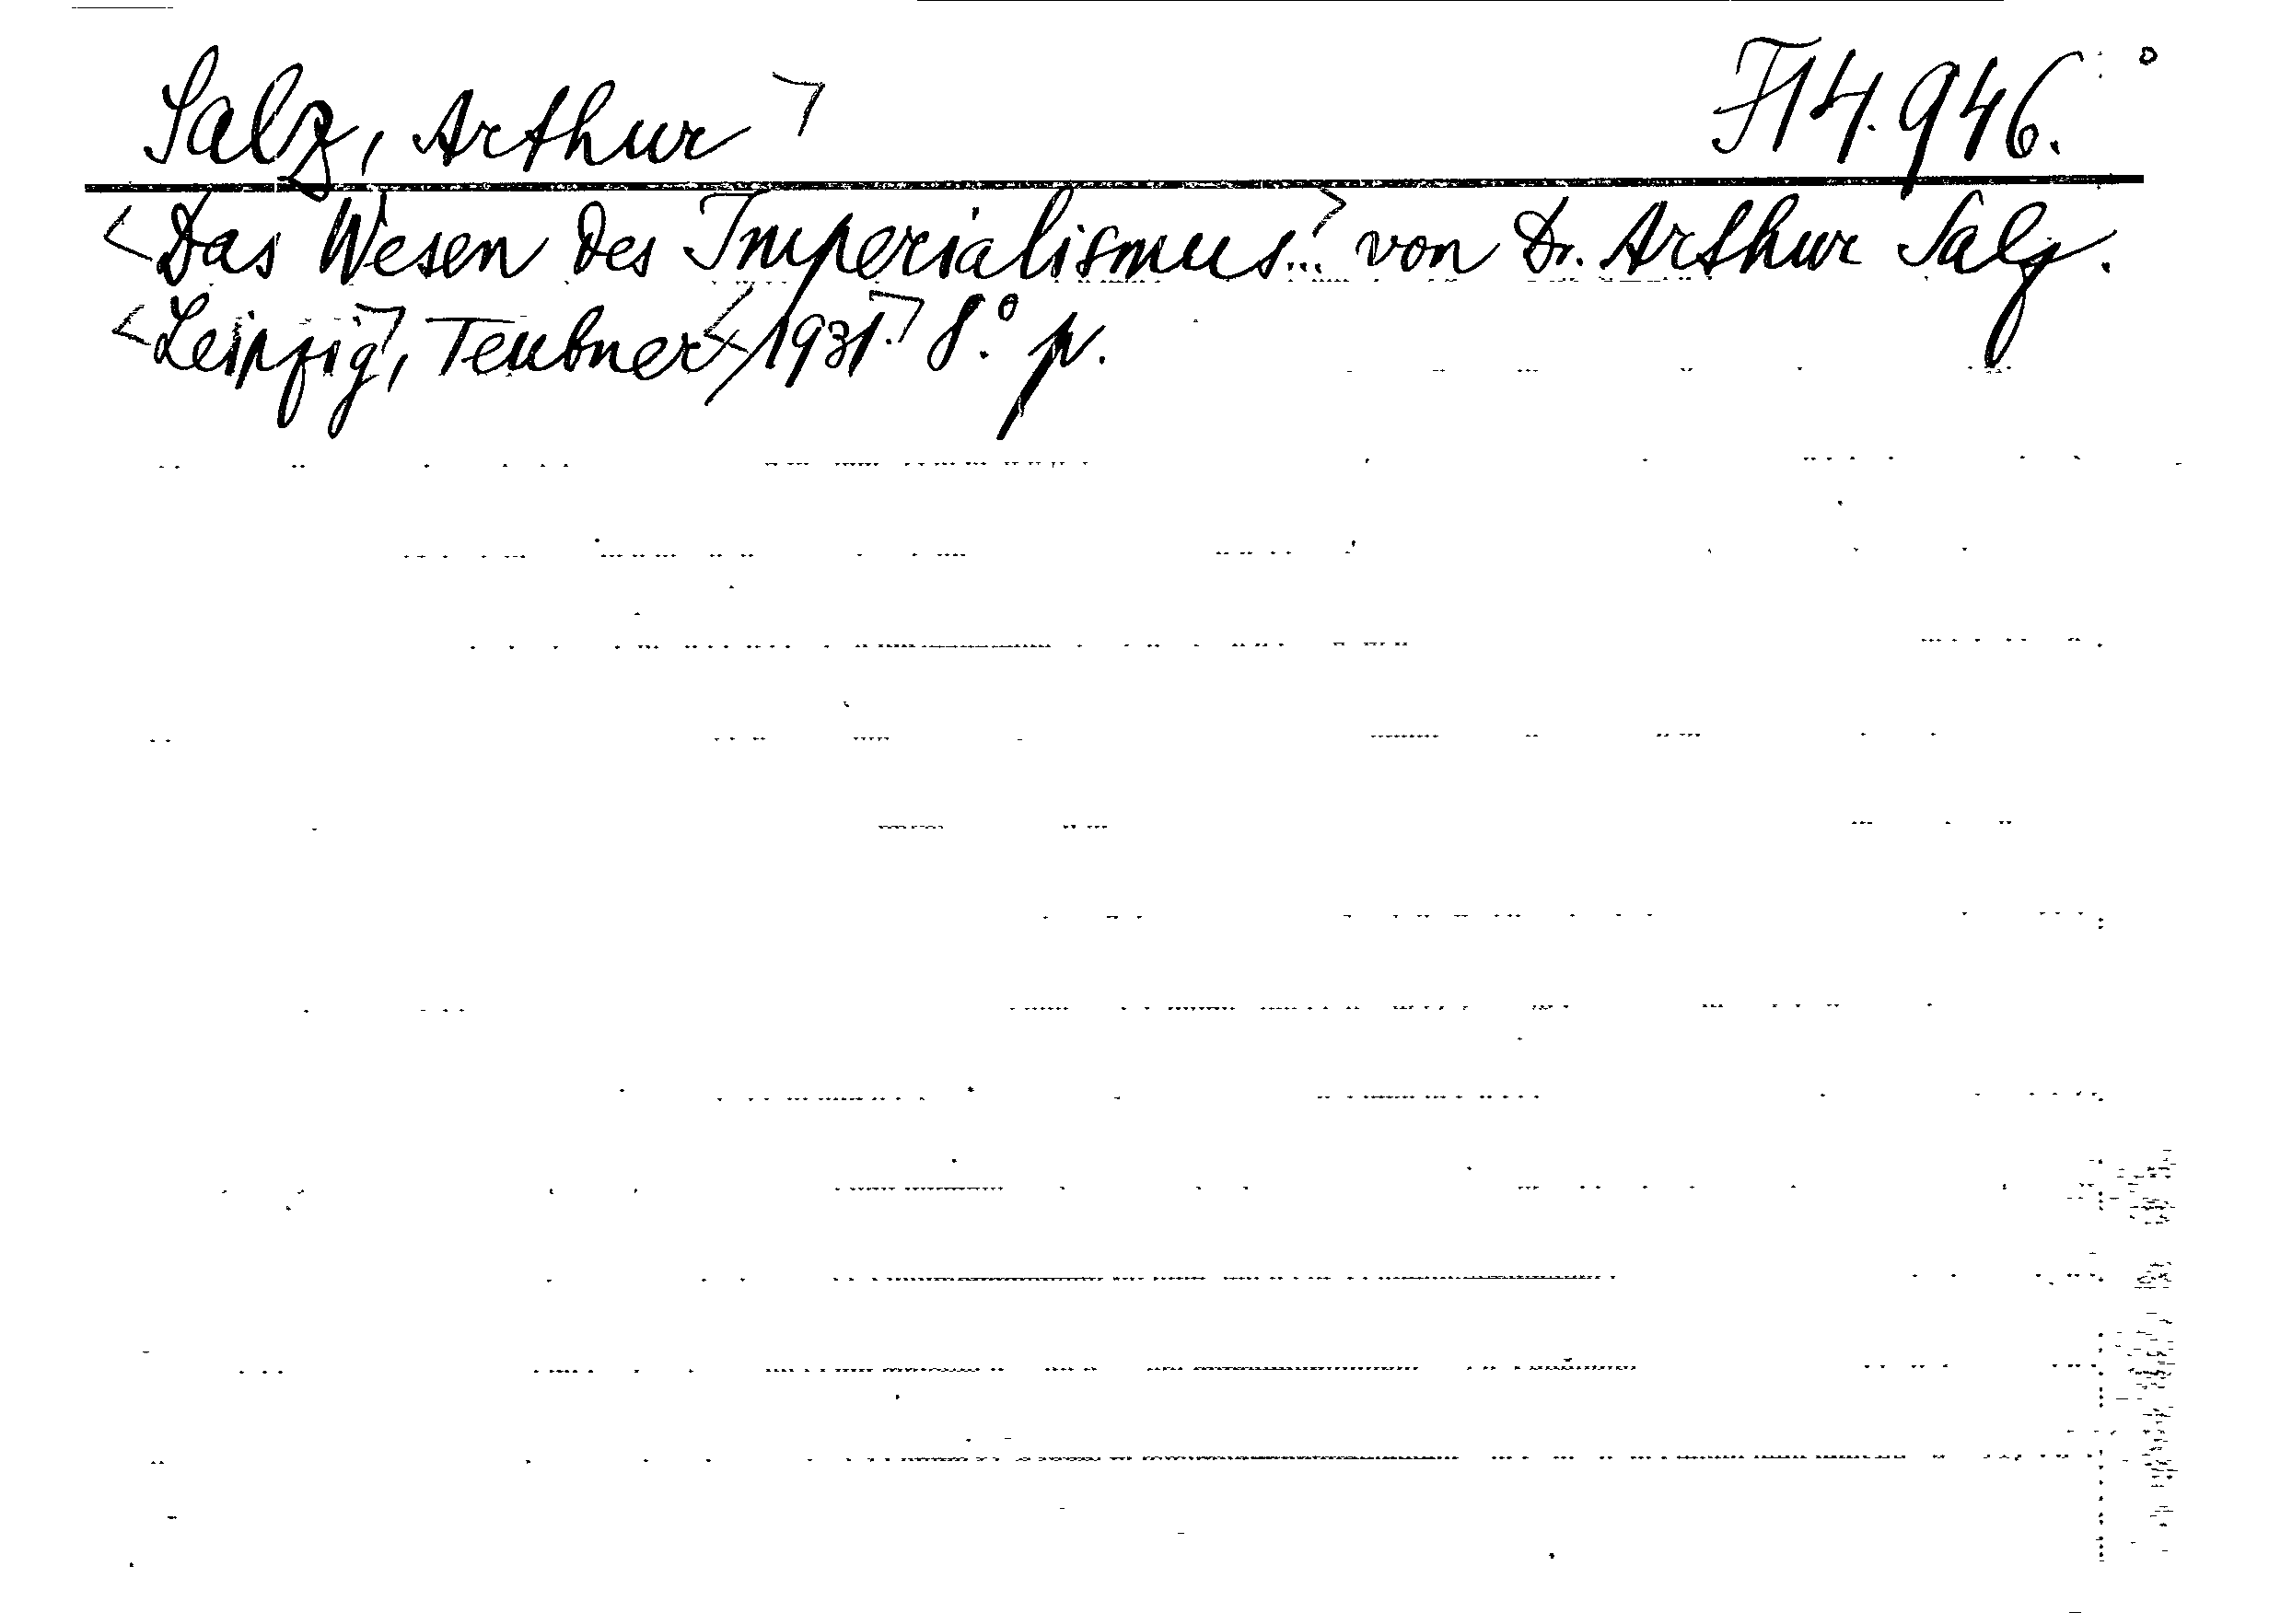 Salz, Arthur ⌝ F14.946.°
<Das Wesen des Imperialismus...⌝ von Dr. Arthur Salz.
<Leipzig⌝, Teubner <1931.⌝ 8.° p.